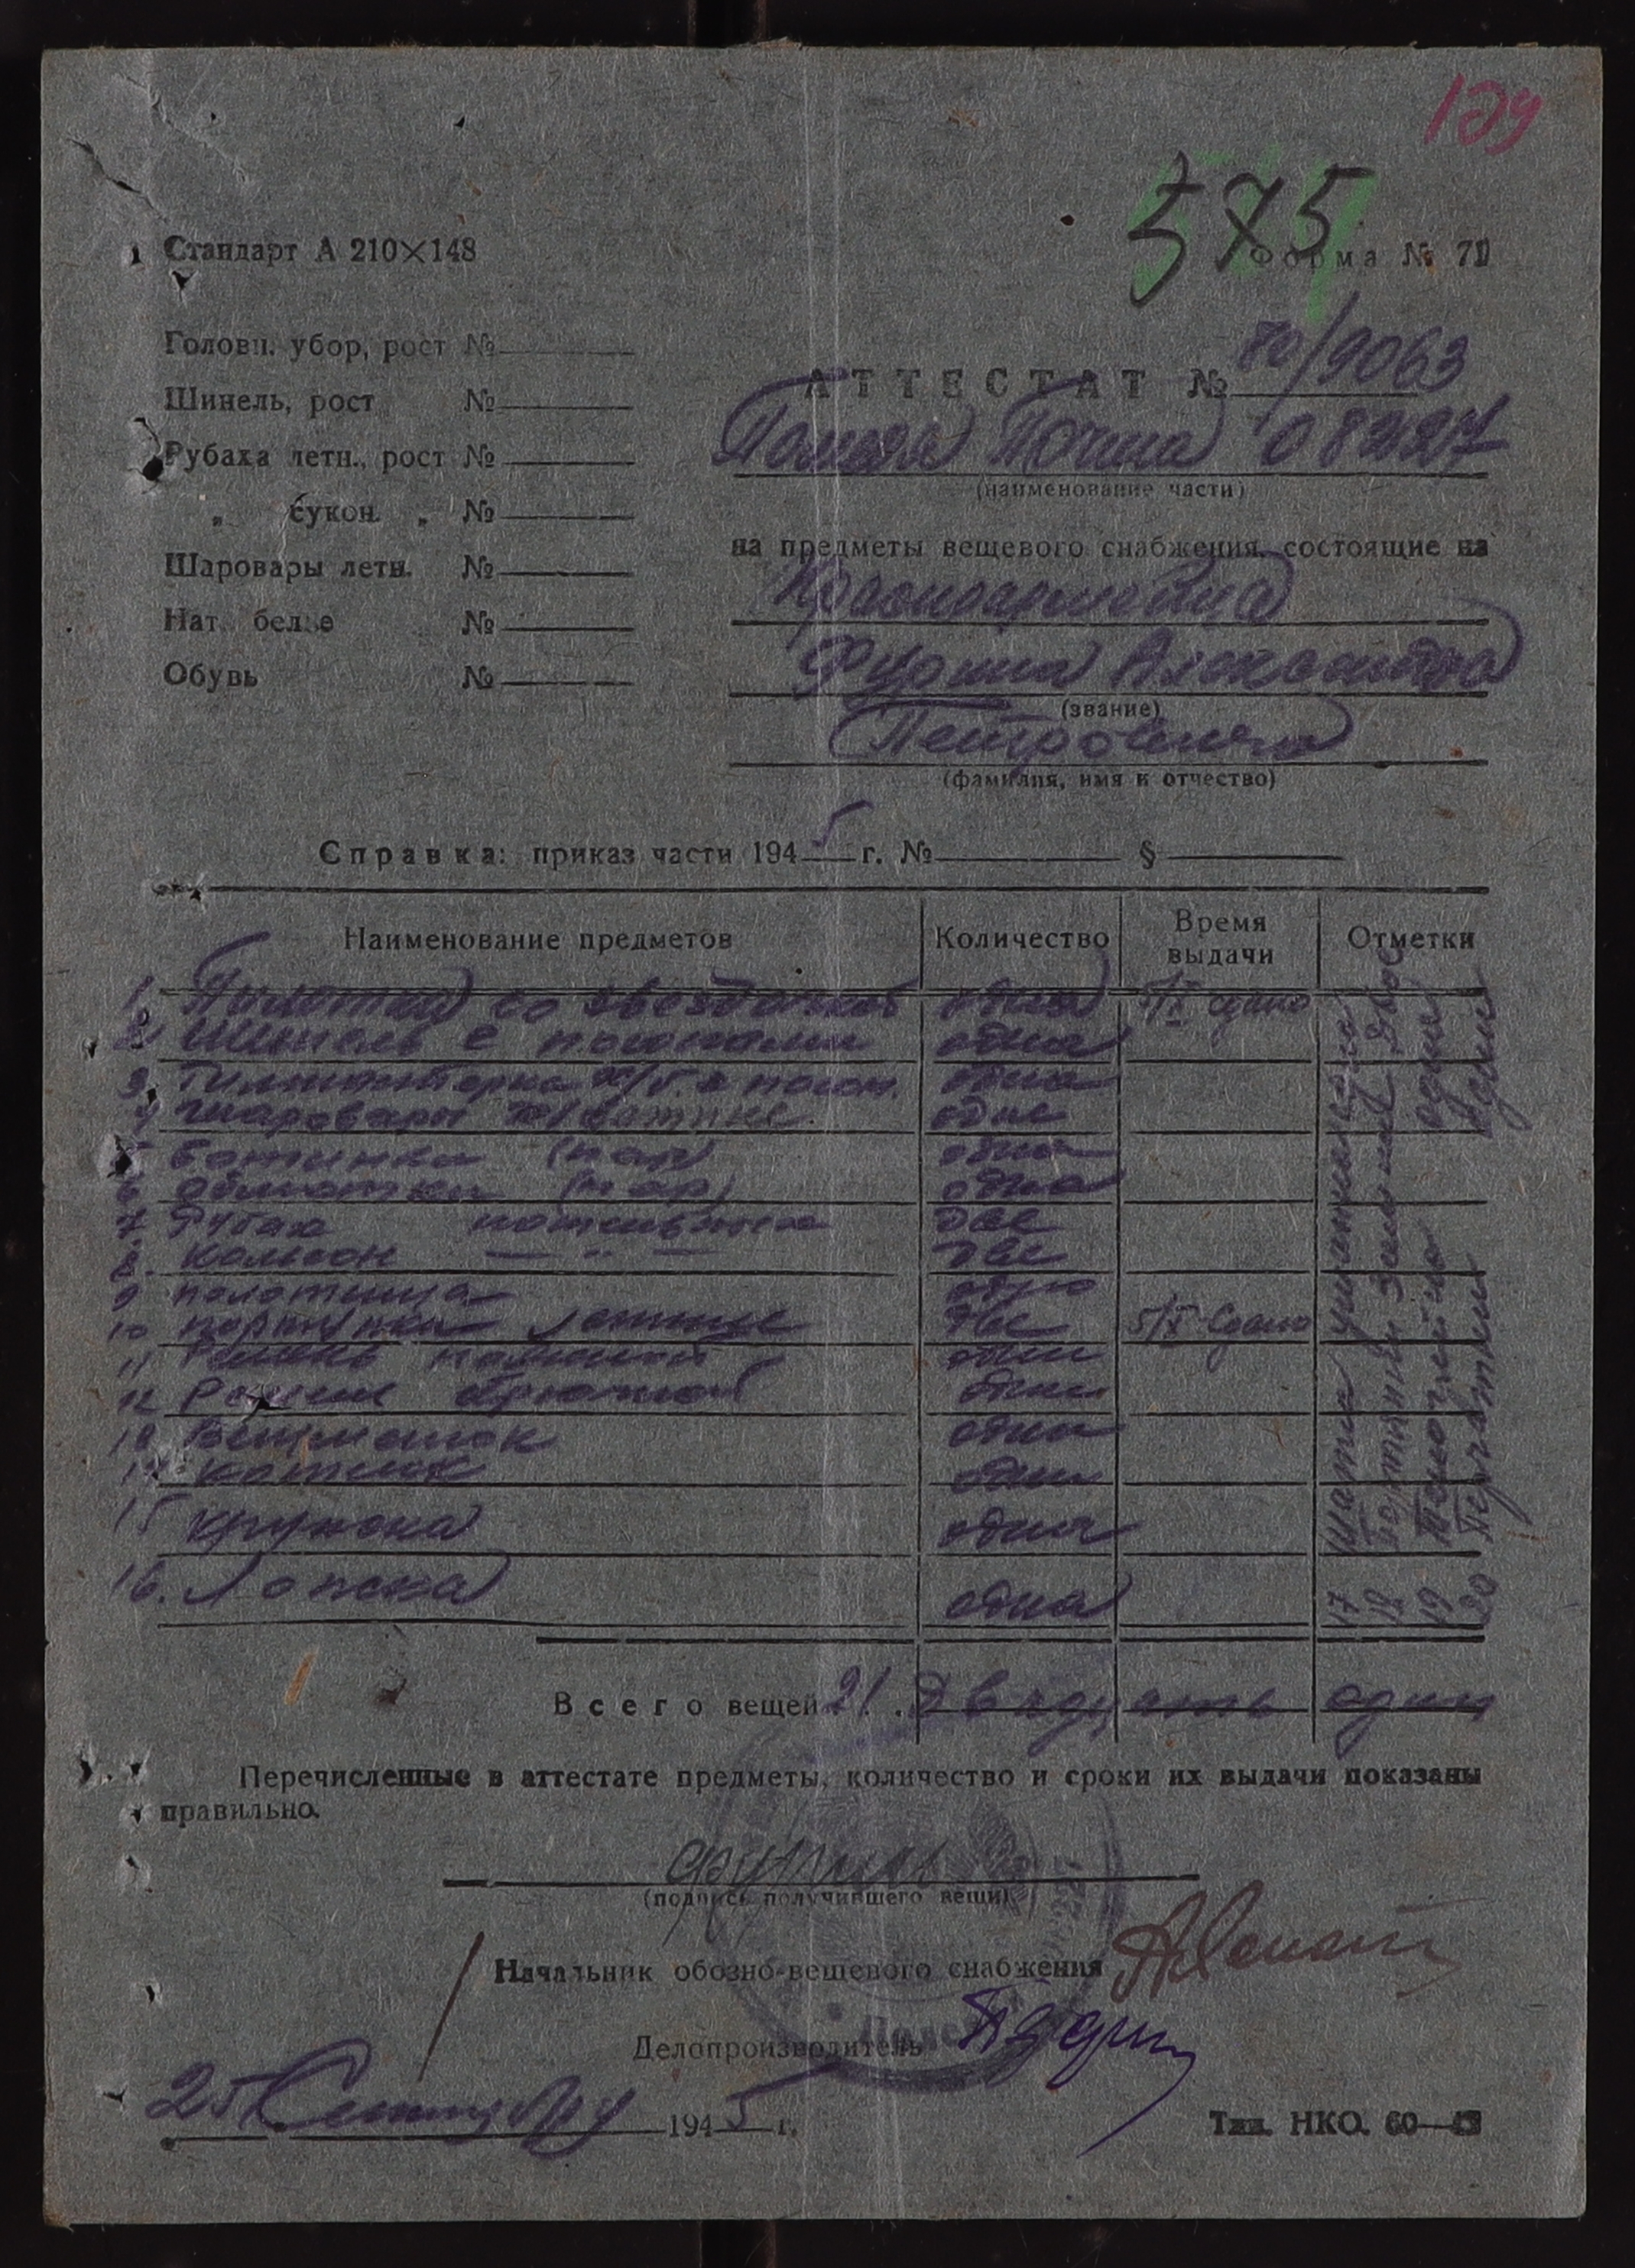 575
Стандарт А 210×148
Форма № 71
Головн. убор, рост №
Шинель, рост №
Рубаха летн., рост №
„ сукон. „ №
Шаровары летн. №
Нат. белье №
Обувь №
АТТЕСТАТ № 70/9063
Полевая Почта 08227
(наименование части)
на предметы вещевого снабжения, состоящие на
Красноармейца
Александра
(звание)
Петровича
(фамилия, имя и отчество)
Справка: приказ части 1945 г. № §
Наименование предметов Количество Время выдачи Отметки
1. Пилотка со звездочкой одна 5/X сдано
2. Шинель с погонами одна
3. Гимнастерка х/б с погон. одна
4 шаровары одне
5 Ботинки (пар) одна
6 обмотки (пар) одна
7. Рубах нательных две
8. Кальсон — „ — две
9 полотенца одно
10 портянки летние две 5/X Сдано
11 Ремень поясной один
12 Ремень брючной один
13 Вещмешок один
14 котелок один
15 кружка одна
16. Ложка одна
17 Шапка
18 Портянки зимние двое
19
20 Перчатки одни
Всего вещей 21. Двадцать один
Перечисленные в аттестате предметы, количество и сроки их выдачи показаны
правильно.
(подпись получившего вещи)
Начальник обозно-вещевого снабжения
Делопроизводитель
25 Сентября 1945 г.
Тип. НКО. 60—43